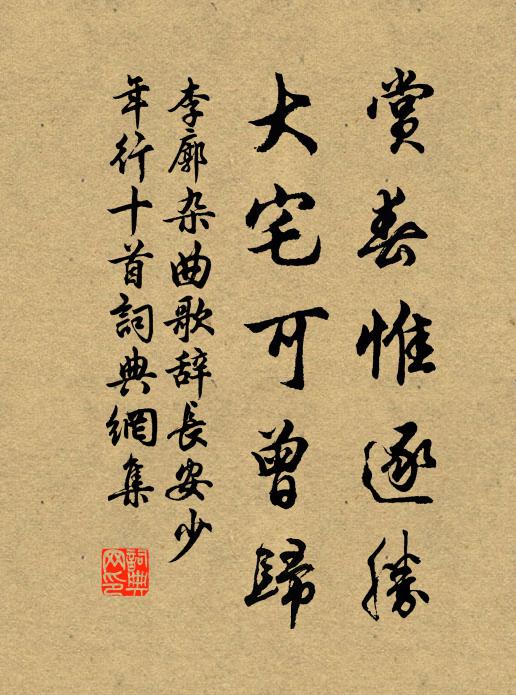 賞春惟逐勝
大宅可曾歸
李廓杂曲歌辞長安少
年行十首詞典網集
詞典网印